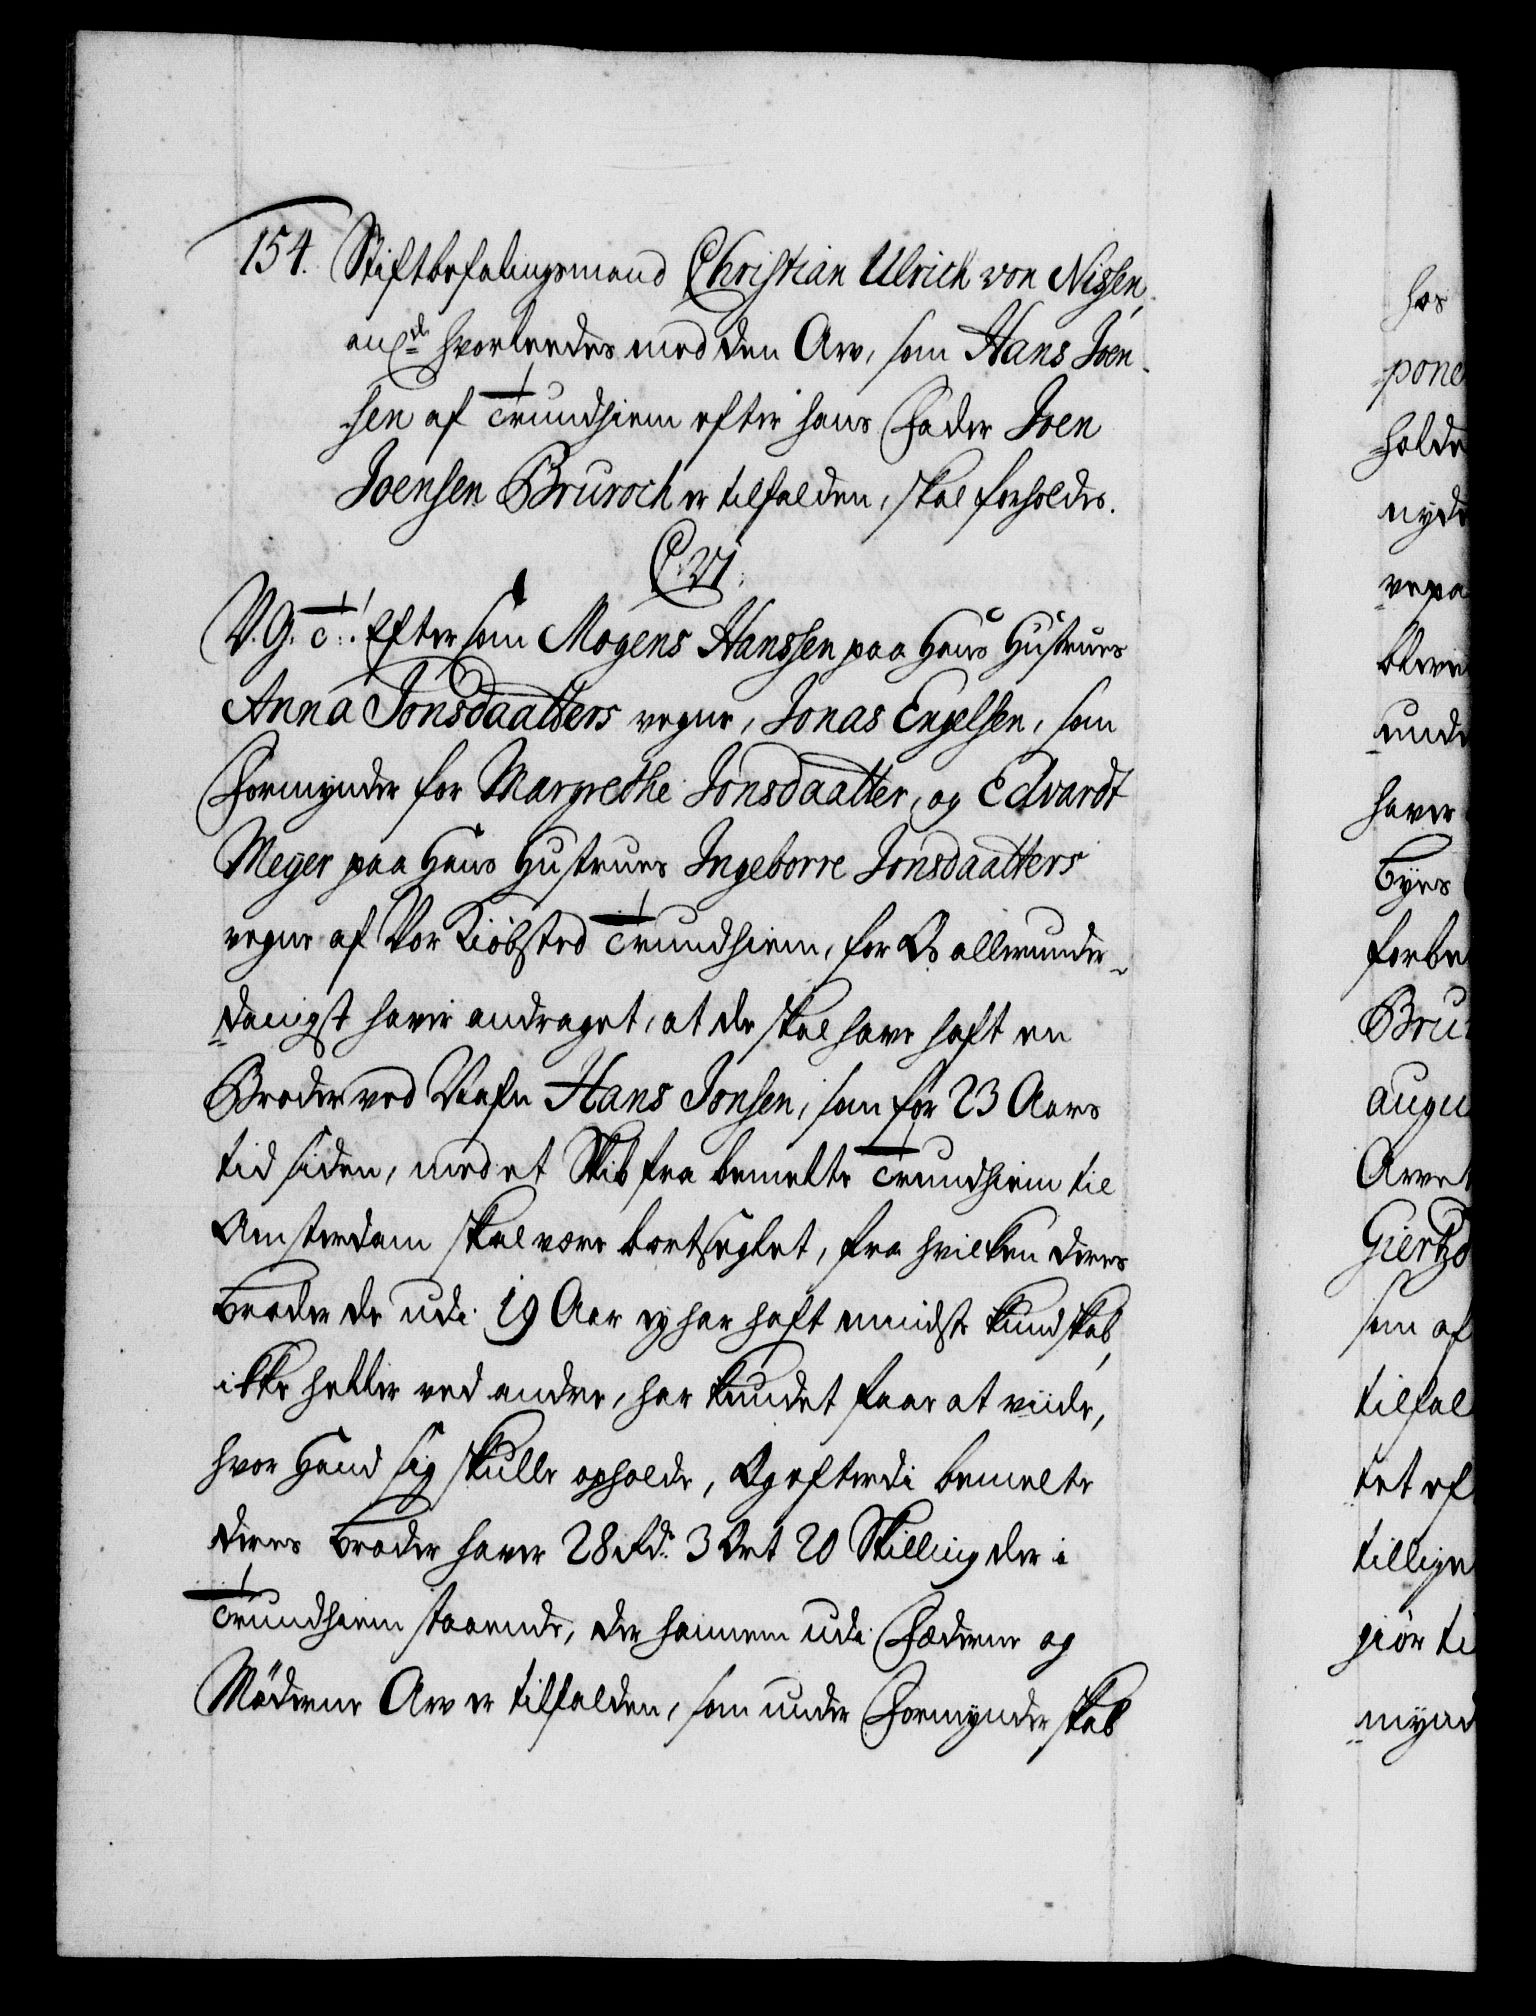 154. Stiftbefalingsmand Christian Ulrich von Nissen,
anl hvorledes med den Arv, som Hans Joen-
sen af Trundhiem efter hans Fader Joen
Joensen Bruroch er tilfalden, skal forholdes.
C. VI.
V. G. T: Eftersom Mogens Hanssen paa Hans Hustrues
Anna Jonsdaatters vegne, Jonas Engelsen, som
Formynder for Margrethe Jonsdaatter, og Edvardt
Meyer paa Hans Hustrues Ingeborre Jonsdaatters
vegne af Vor Kiöbsted Trundhiem, for Os allerunder-
danigst haver andraget, at de skal have haft en
Broder ved Nafn Hans Jonsen, som for 23 Aars
tid siden, med et Skib fra bemelte Trundhiem til
Amsterdam skal være bortseglet, fra hvilken deres
Broder de udi 19 Aar ej har haft mindste kundskab,
ikke heller ved andre, har kundet faae at viide,
hvor Hand sig skulle opholde, Og efterdi bemelte
deres Broder haver 28 Rd. 3 Ort 20 Skilling der i
Trundhiem staaende, der hannem udi Fæderne og
Möderne Arv er tilfalden, som under Formynderskab
hos
pone
holde
nyde
repa
bleve
unde
haver
Byes
forbe
Bru
augu
Arvet
Giertzd
som af
tilfal
tet ef
tillige
giör ti
mynd